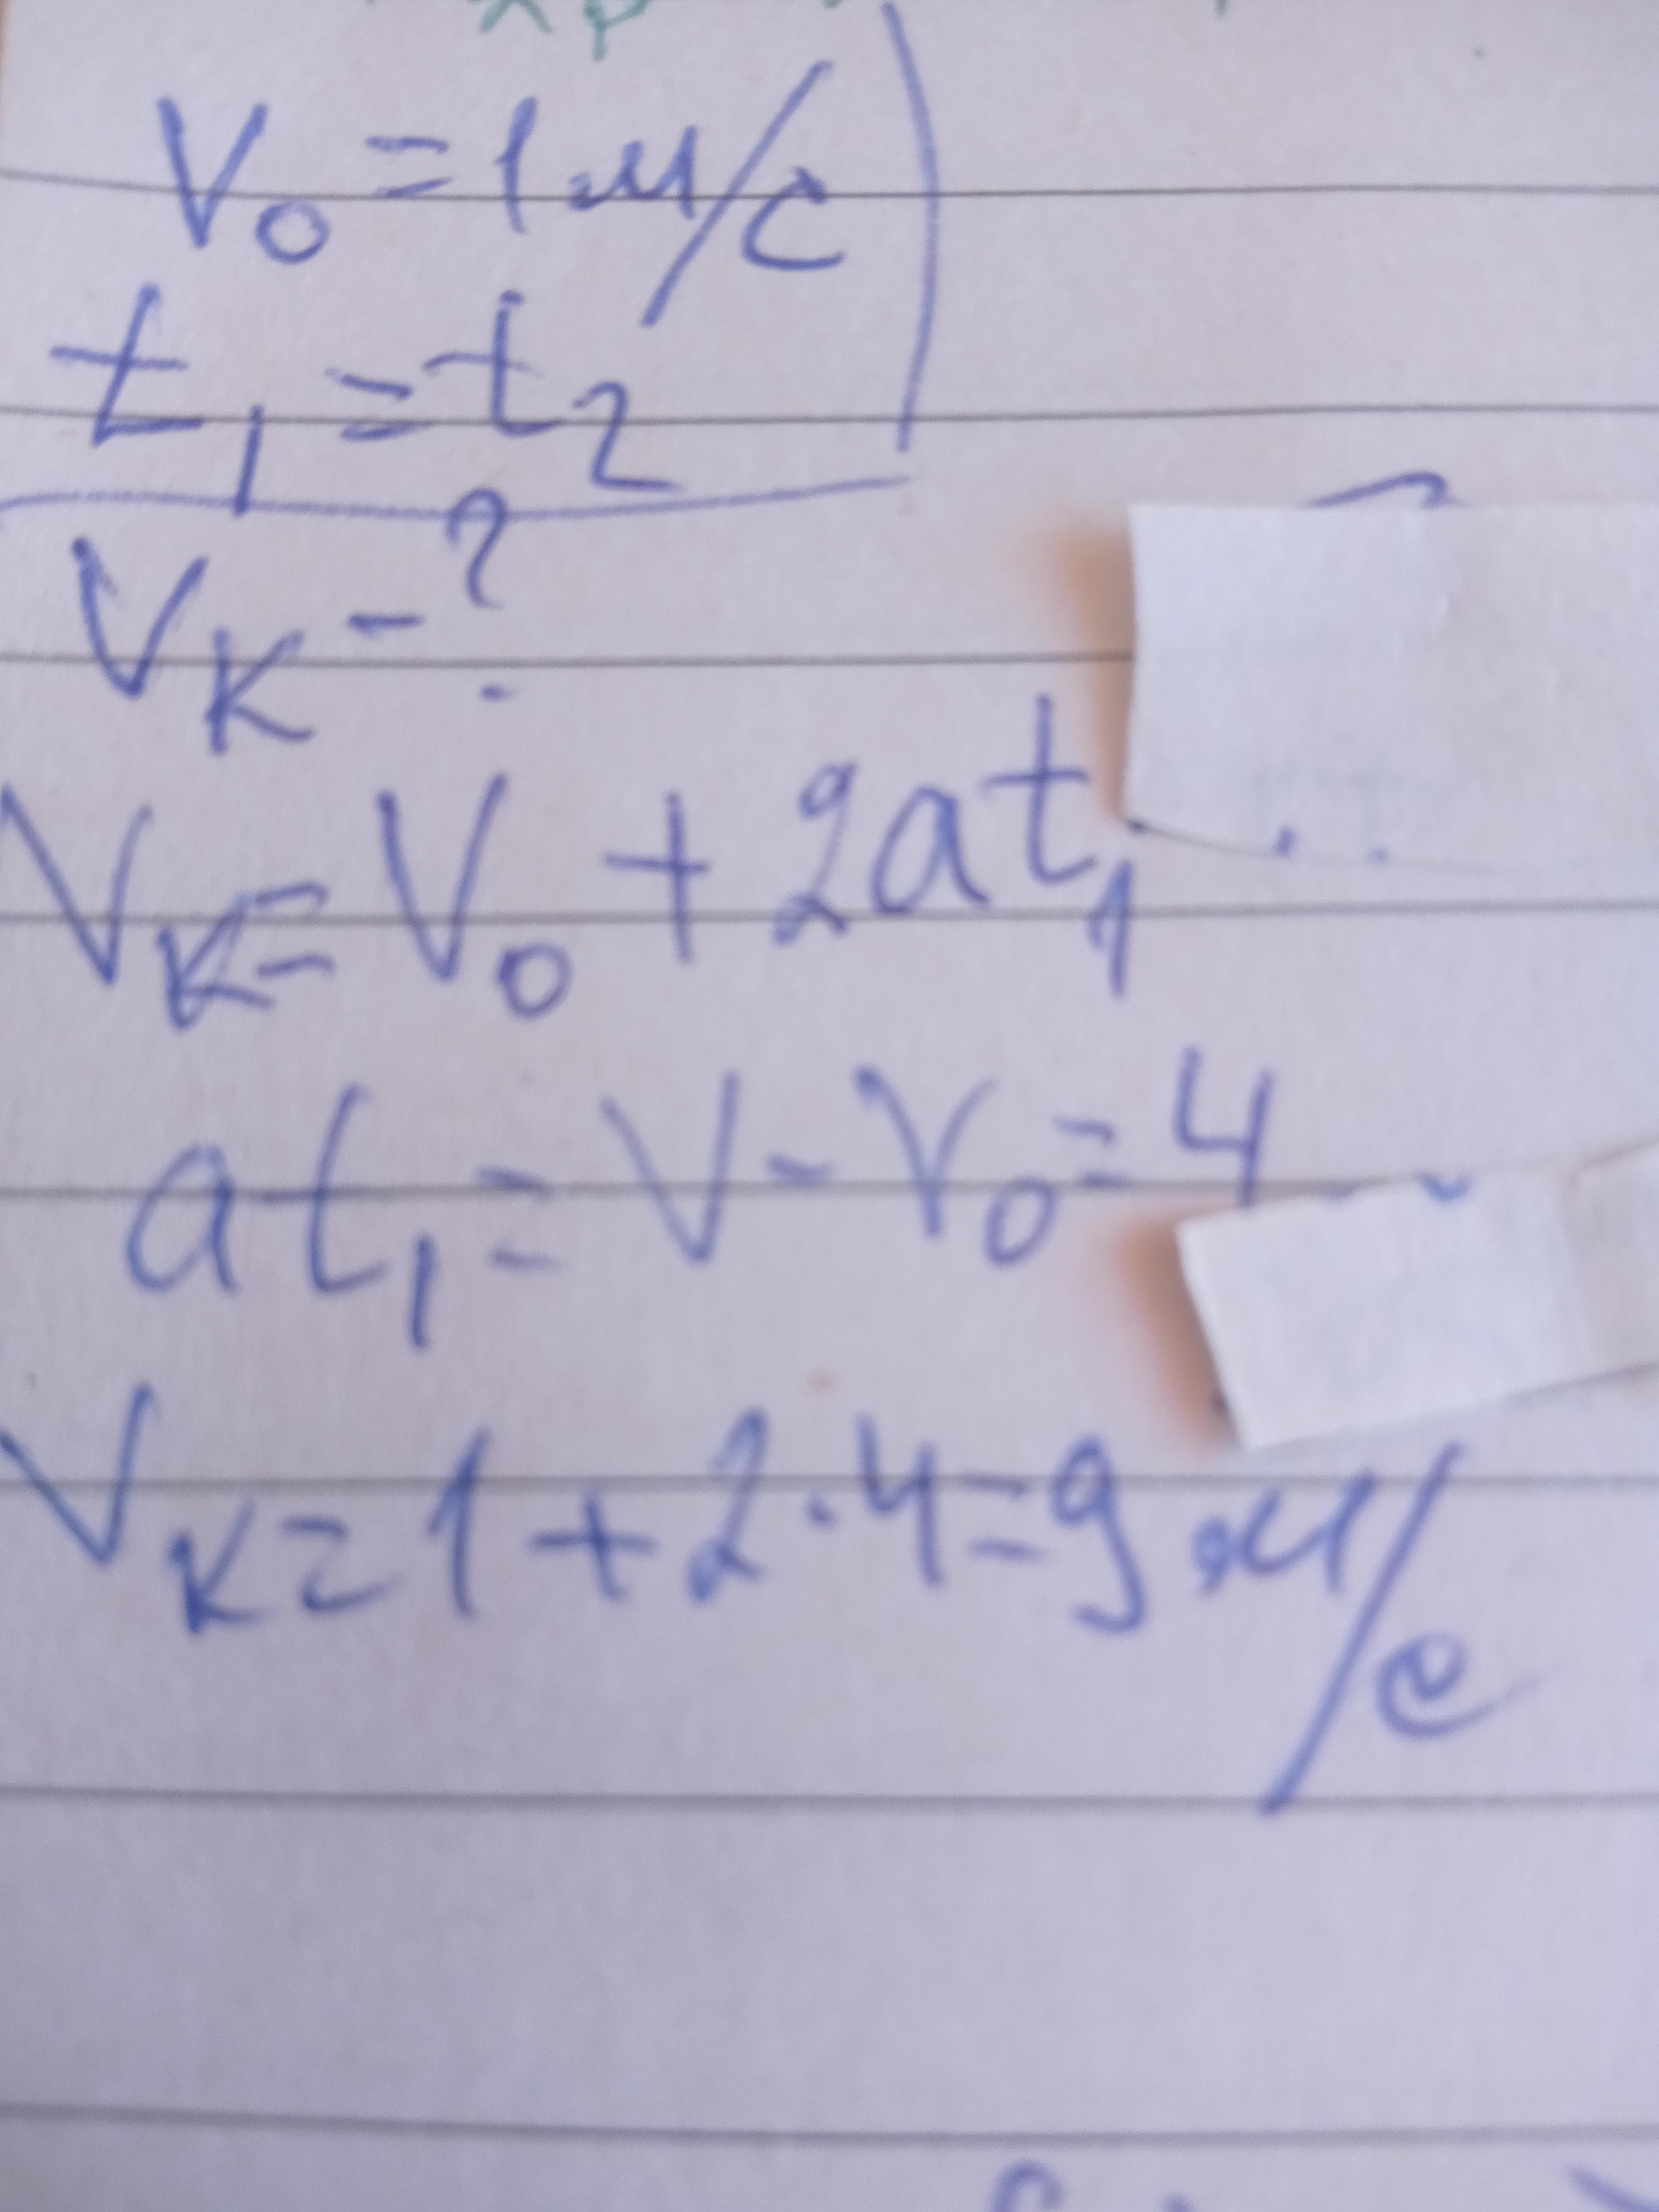 V₀ = 1 м/с
t₁ = t₂
Vк - ?
Vк = V₀ + 2at₁
at₁ = V - V₀ = 4
Vк = 1 + 2 · 4 = 9 м/с